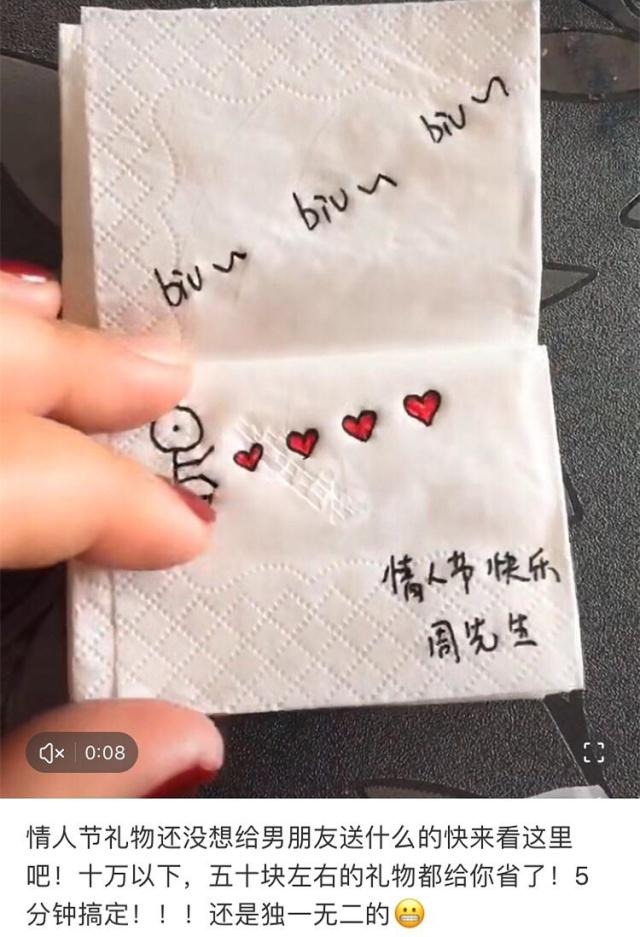 biu~
biu~
biu~
情人节快乐
周先生
0:08
情人节礼物还没想给男朋友送什么的快来看这里
吧！十万以下，五十块左右的礼物都给你省了！5
分钟搞定！！！还是独一无二的😬